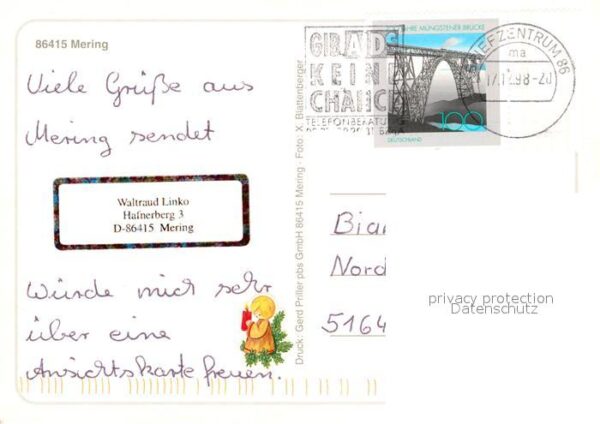 86415 Mering
Viele Grüße aus
Mering sendet
Waltraud Linko
Hafnerberg 3
D-86415 Mering
Würde mich sehr
über eine
Ansichtskarte freuen.
Druck: Gerd Priller pbs GmbH 86415 Mering - Foto: X. Blattenberger
GIB AIDS
KEINE
CHANCE
TELEFONBERATUNG
JAHRE MÜNGSTENER BRÜCKE
100
DEUTSCHLAND
BRIEFZENTRUM 86
ma
98-20
Bian
Nord
5164
privacy protection
Datenschutz